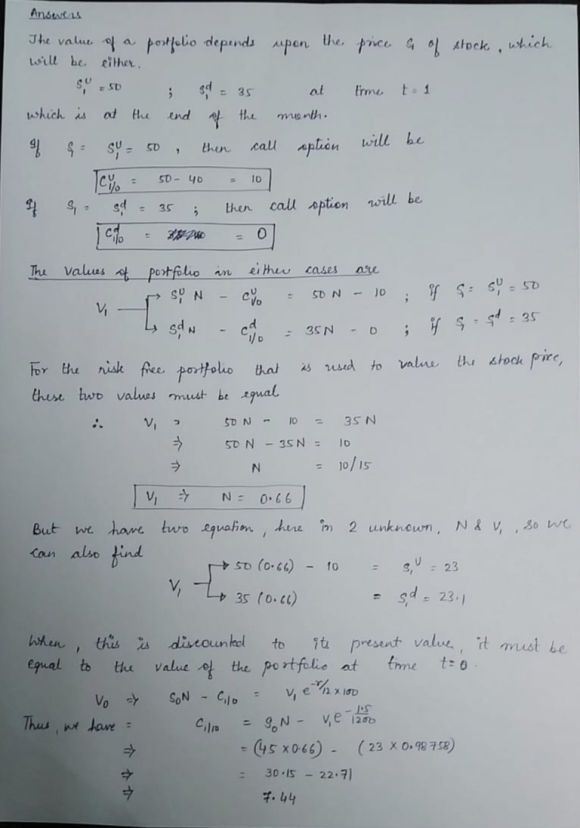 Answers
The value of a portfolio depends upon the price S₁ of stock, which
will be either.
S₁ᵁ = 50 ; S₁ᵈ = 35 at time t = 1
which is at the end of the month.
If S₁ = S₁ᵁ = 50 , then call option will be
Cᵁ₁/₀ = 50 - 40 = 10
If S₁ = S₁ᵈ = 35 ; then call option will be
Cᵈ₁/₀ = = 0
The values of portfolio in either cases are
V₁ → S₁ᵁ N - Cᵁ₁/₀ = 50 N - 10 ; if S₁ = S₁ᵁ = 50
↳ S₁ᵈ N - Cᵈ₁/₀ = 35N - 0 ; if S₁ = S₁ᵈ = 35
For the risk free portfolio that is used to value the stock price,
these two values must be equal
∴ V₁ ⇒ 50 N - 10 = 35 N
⇒ 50 N - 35 N = 10
⇒ N = 10/15
V₁ ⇒ N = 0.66
But we have two equation, here in 2 unknown, N & V₁, so we
can also find
V₁ → 50 (0.66) - 10 = S₁ᵁ = 23
↳ 35 (0.66) = S₁ᵈ = 23.1
When, this is discounted to its present value, it must be
equal to the value of the portfolio at time t=0.
V₀ ⇒ S₀N - C₁/₀ = V₁ e^-r/12 x 100
Thus, we have = C₁/₁₀ = S₀N - V₁e^-1.5/1200
⇒ = (45 x 0.66) - (23 x 0.98758)
⇒ = 30.15 - 22.71
⇒ 7.44